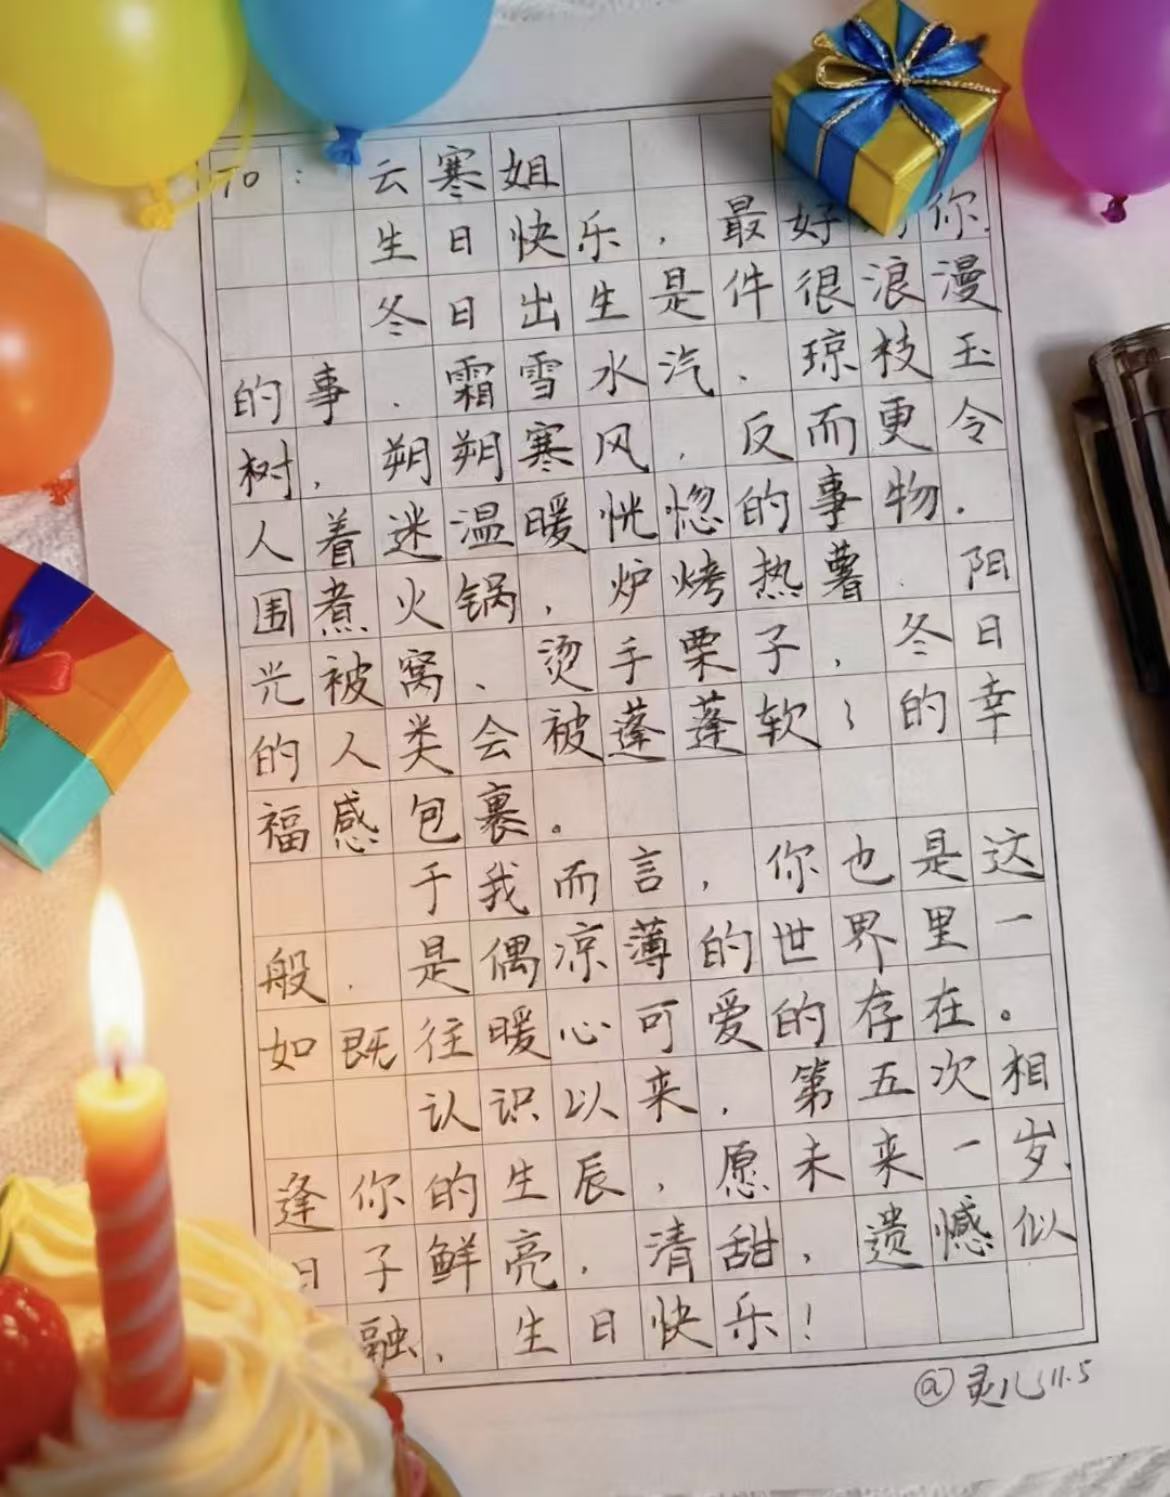 TO: 云寒姐
生日快乐，最好 你.
冬日出生是件很浪漫
的事．霜雪水汽、琼枝玉
树，朔朔寒风．反而更令
人着迷温暖恍惚的事物．
围煮火锅，炉烤热薯、阳
光被窝、烫手栗子，冬日
的人类会被蓬蓬软 的幸
福感包裹。
于我而言，你也是这
般．是偶凉薄的世界里一
如既往暖心可爱的存在。
认识以来．第五次相
逢你的生辰，愿未来一岁.
日子鲜亮．清甜，遗憾似
融．生日快乐！
@灵儿11.5